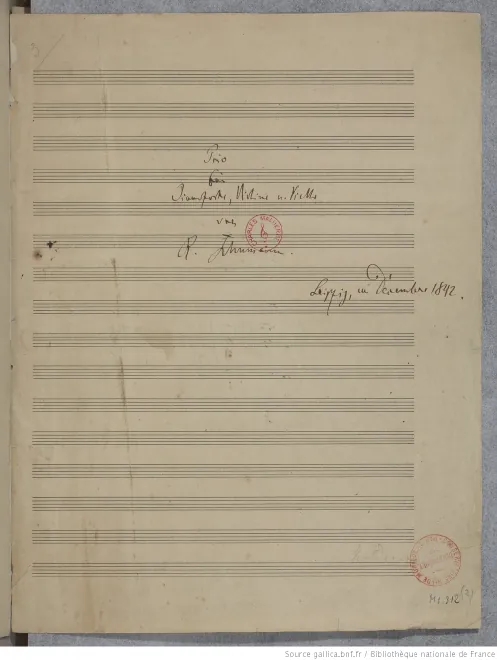 Trio
für
Pianoforte, Violine u. Vcello
von
R. Schumann.
Leipzig, im December 1842.
CHARLES MALHERBE
Ms. 312 (3)
Source gallica.bnf.fr / Bibliothèque nationale de France